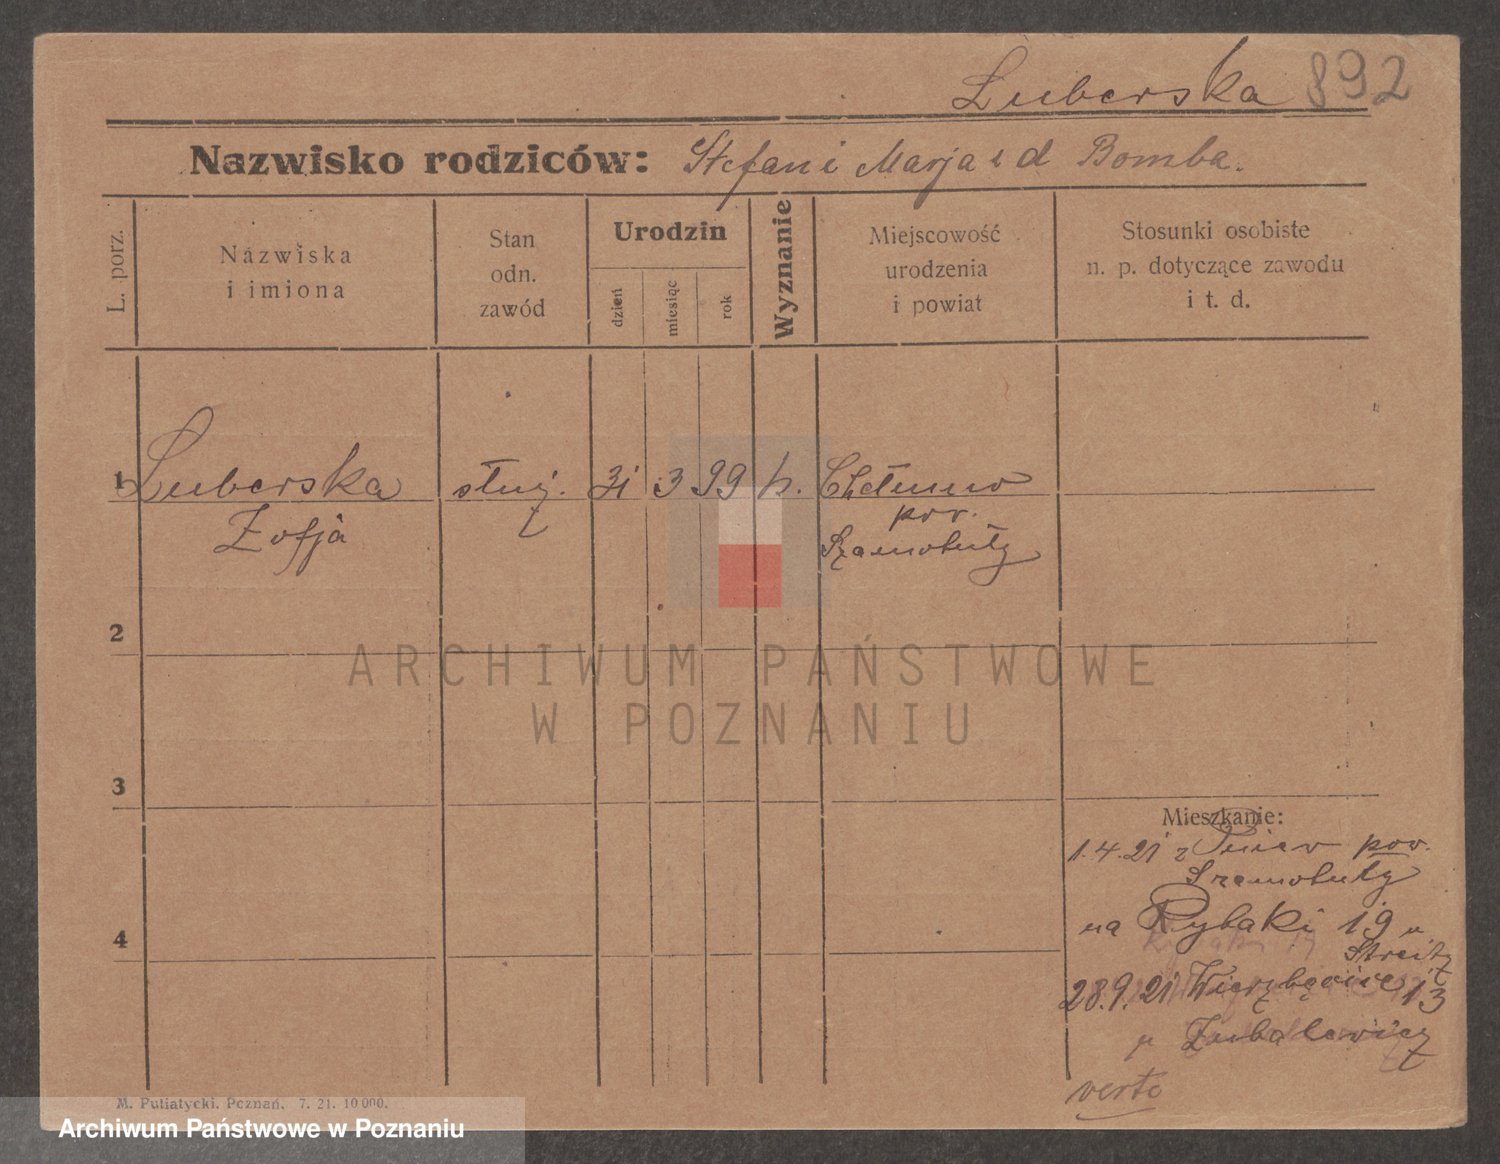 Luberska 892
Nazwisko rodziców: Stefan i Marja z d Bomba.
L. porz.
Nazwiska
i imiona
Stan
odn.
zawód
Urodzin
dzień
miesiąc
rok
Wyznanie
Miejscowość
urodzenia
i powiat
Stosunki osobiste
n. p. dotyczące zawodu
i t. d.
1 Luberska służ. 31 3 99 k. Chełmno
Zofja
pow.
Szamotuły
2
ARCHIWUM PAŃSTWOWE
W POZNANIU
3
Mieszkanie:
1.4.21 z Pniew pow.
Szamotuły
4
na Rybaki 19 u
Streitz
28.9.21 Wierzbięcice 13
u
verte
M. Putiatycki. Poznań. 7. 21. 10 000.
Archiwum Państwowe w Poznaniu